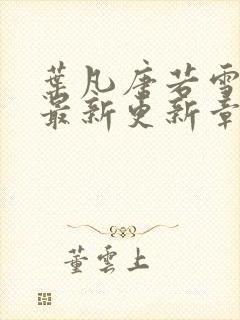 葉凡唐若雪
最新更新章
董雲上